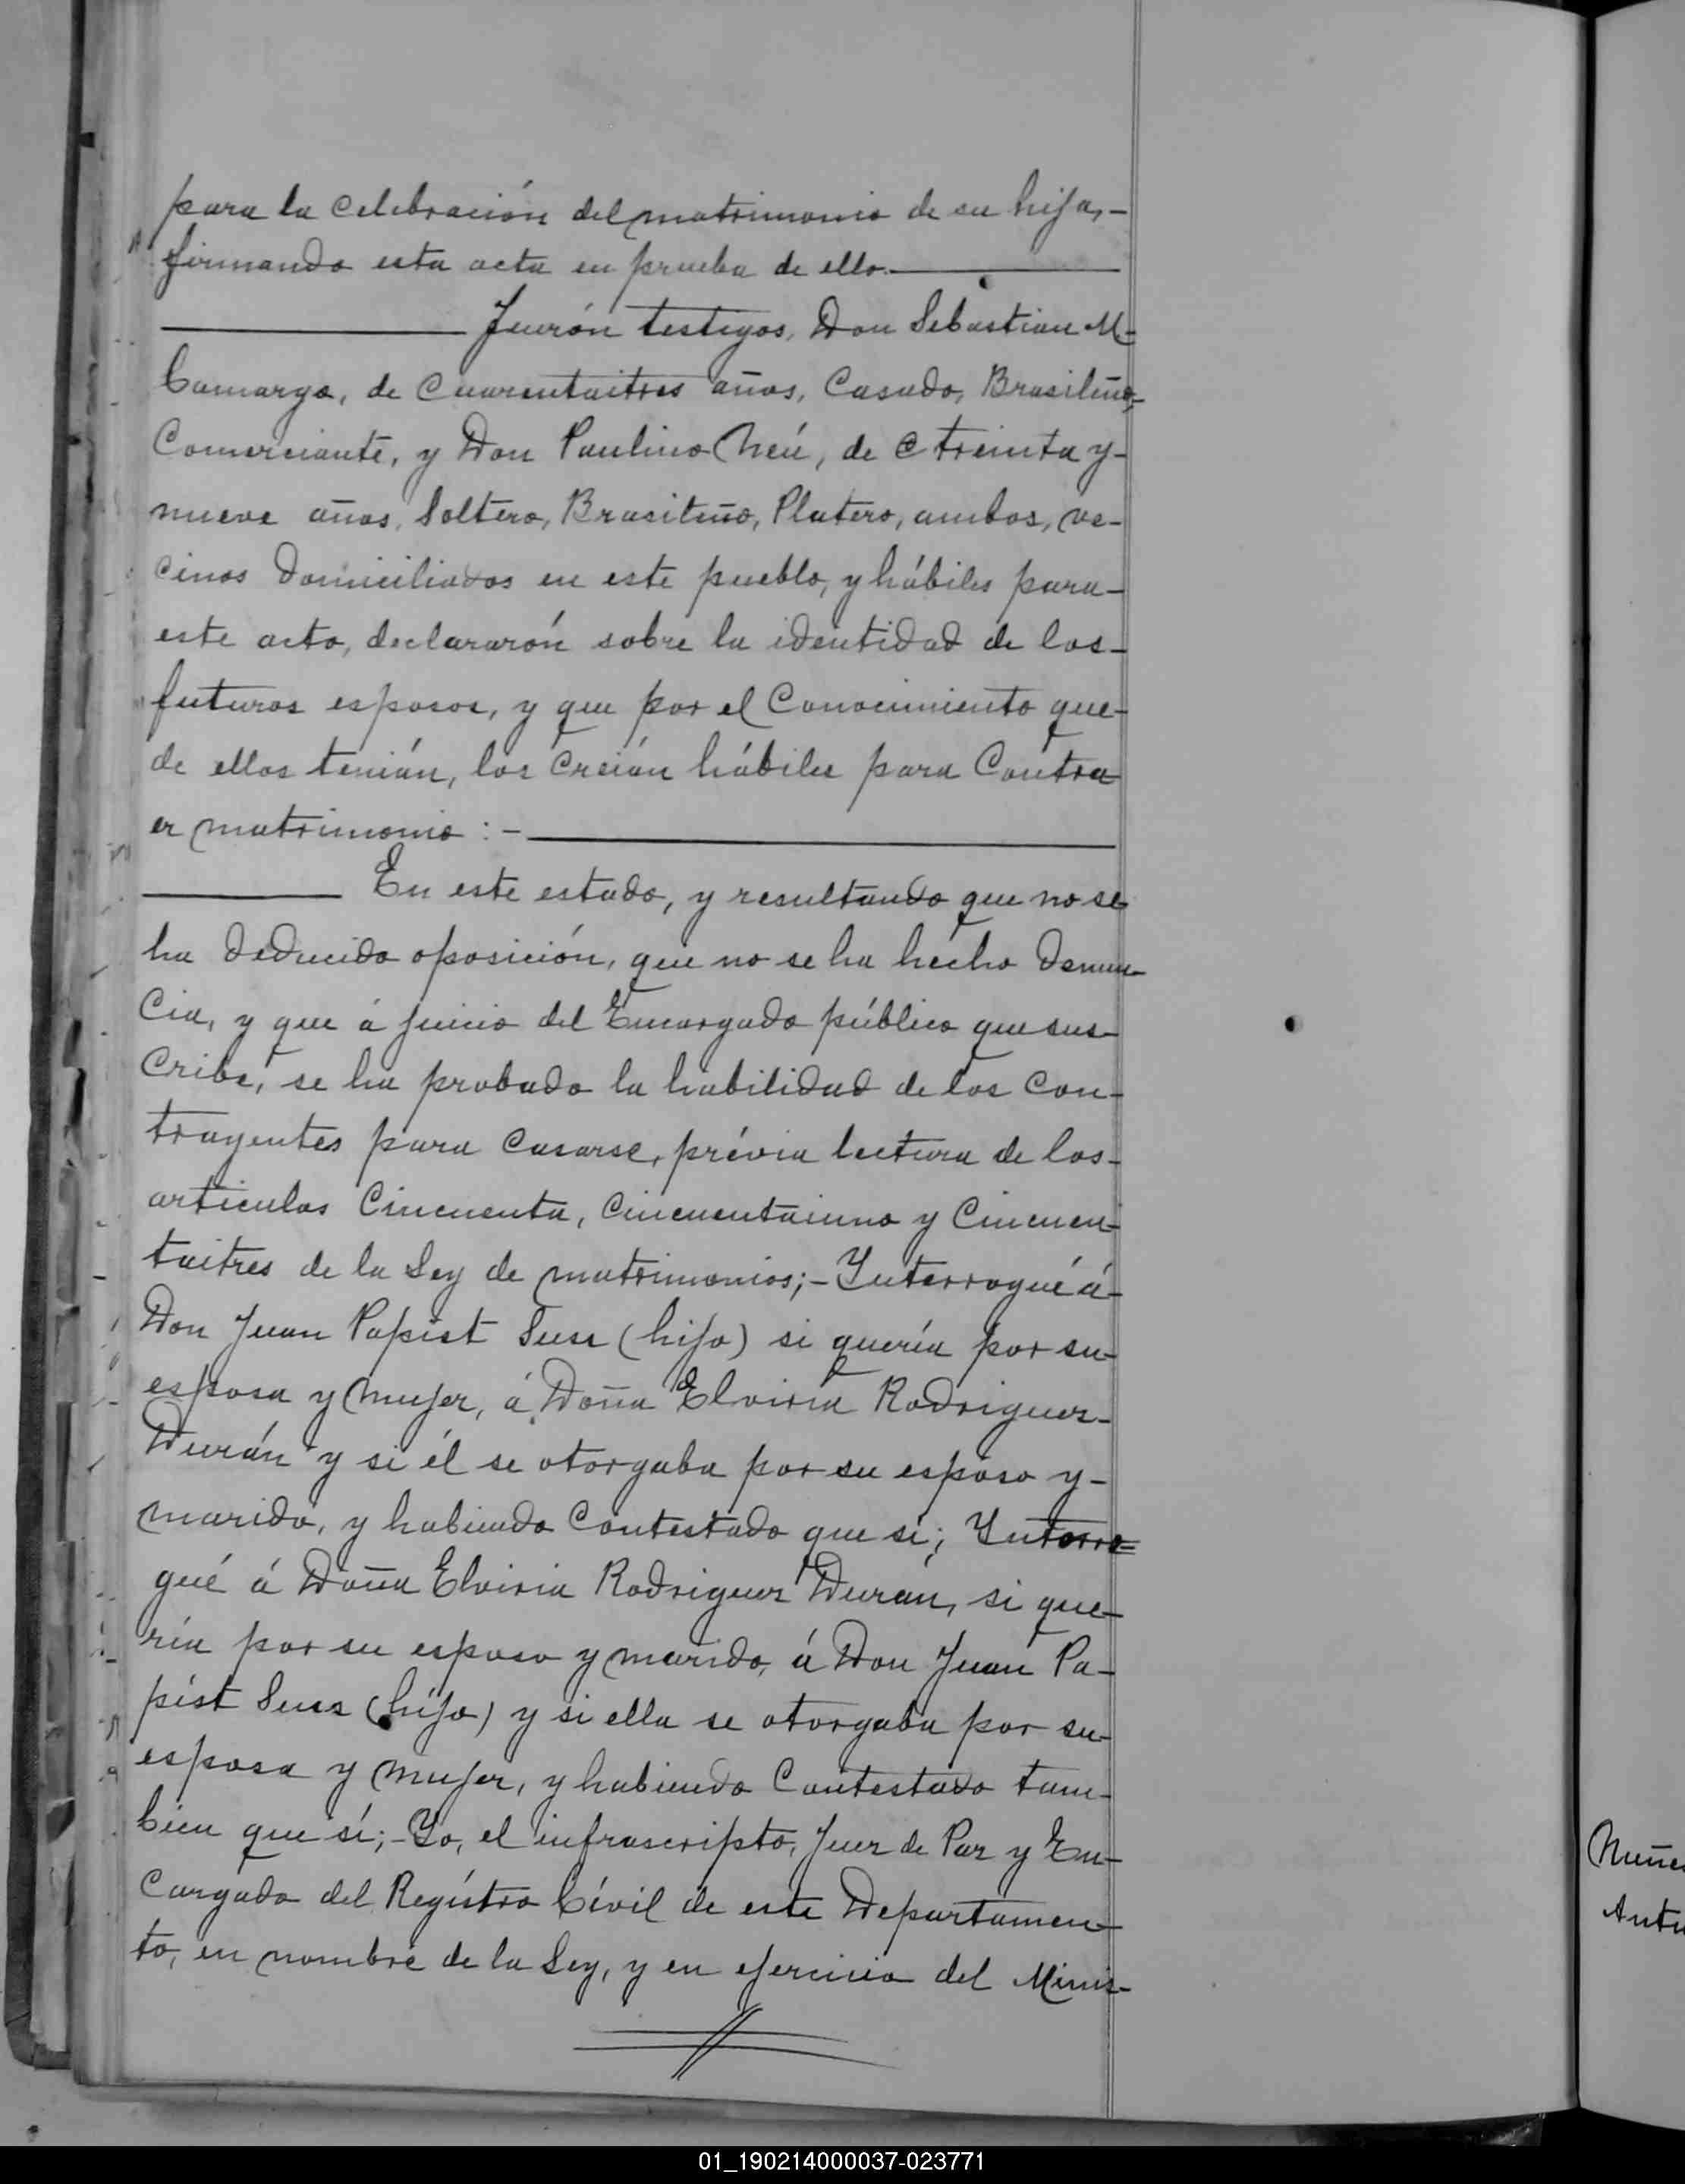 para la celebración del matrimonio de su hija,-
firmando esta acta en prueba de ello.
Fuerón testigos, Don Sebastian M-
Camargo, de Cuarentaitres años, Casado, Brasileño,-
Comerciante, y Don Paulino Neú, de treinta y-
nueve años, Soltero, Brasileño, Platero, ambos, ve-
cinos domiciliados en este pueblo, y hábiles para-
este acto, declararón sobre la identidad de los-
futuros esposos, y que por el Conocimiento que-
de ellos tenián, los creián hábiles para Contra
er matrimonio :-
En este estado, y resultando que no se
ha deducido oposición, que no se ha hecho denun-
cia, y que á juicio del Encargado público que sus-
cribe, se ha probado la habilidad de los con-
trayentes para casarse, prévia lectura de los-
articulos Cincuenta, cincuentaiuno y Cincuen-
taitres de la Ley de matrimonios;- Ynterrogué á-
Don Juan Papist Suss (hijo) si quería por su-
esposa y mujer, á Doña Elviria Rodriguez-
Durán y si él se otorgaba por su esposo y-
marido, y habiendo Contestado que si; Ynterro=
gué á Doña Elviria Rodriguez Durán, si que-
ría por su esposo y marido, á Don Juan Pa-
pist Suss (hijo) y si ella se otorgaba por su-
esposa y mujer, y habiendo Contestado tam-
bien que sí;- Yo, el infrascripto, Juez de Paz y En-
cargado del Registro Civil de este Departamen-
to, en nombre de la Ley, y en ejercicio del Minis-
Nuñe
Anto
01_190214000037-023771